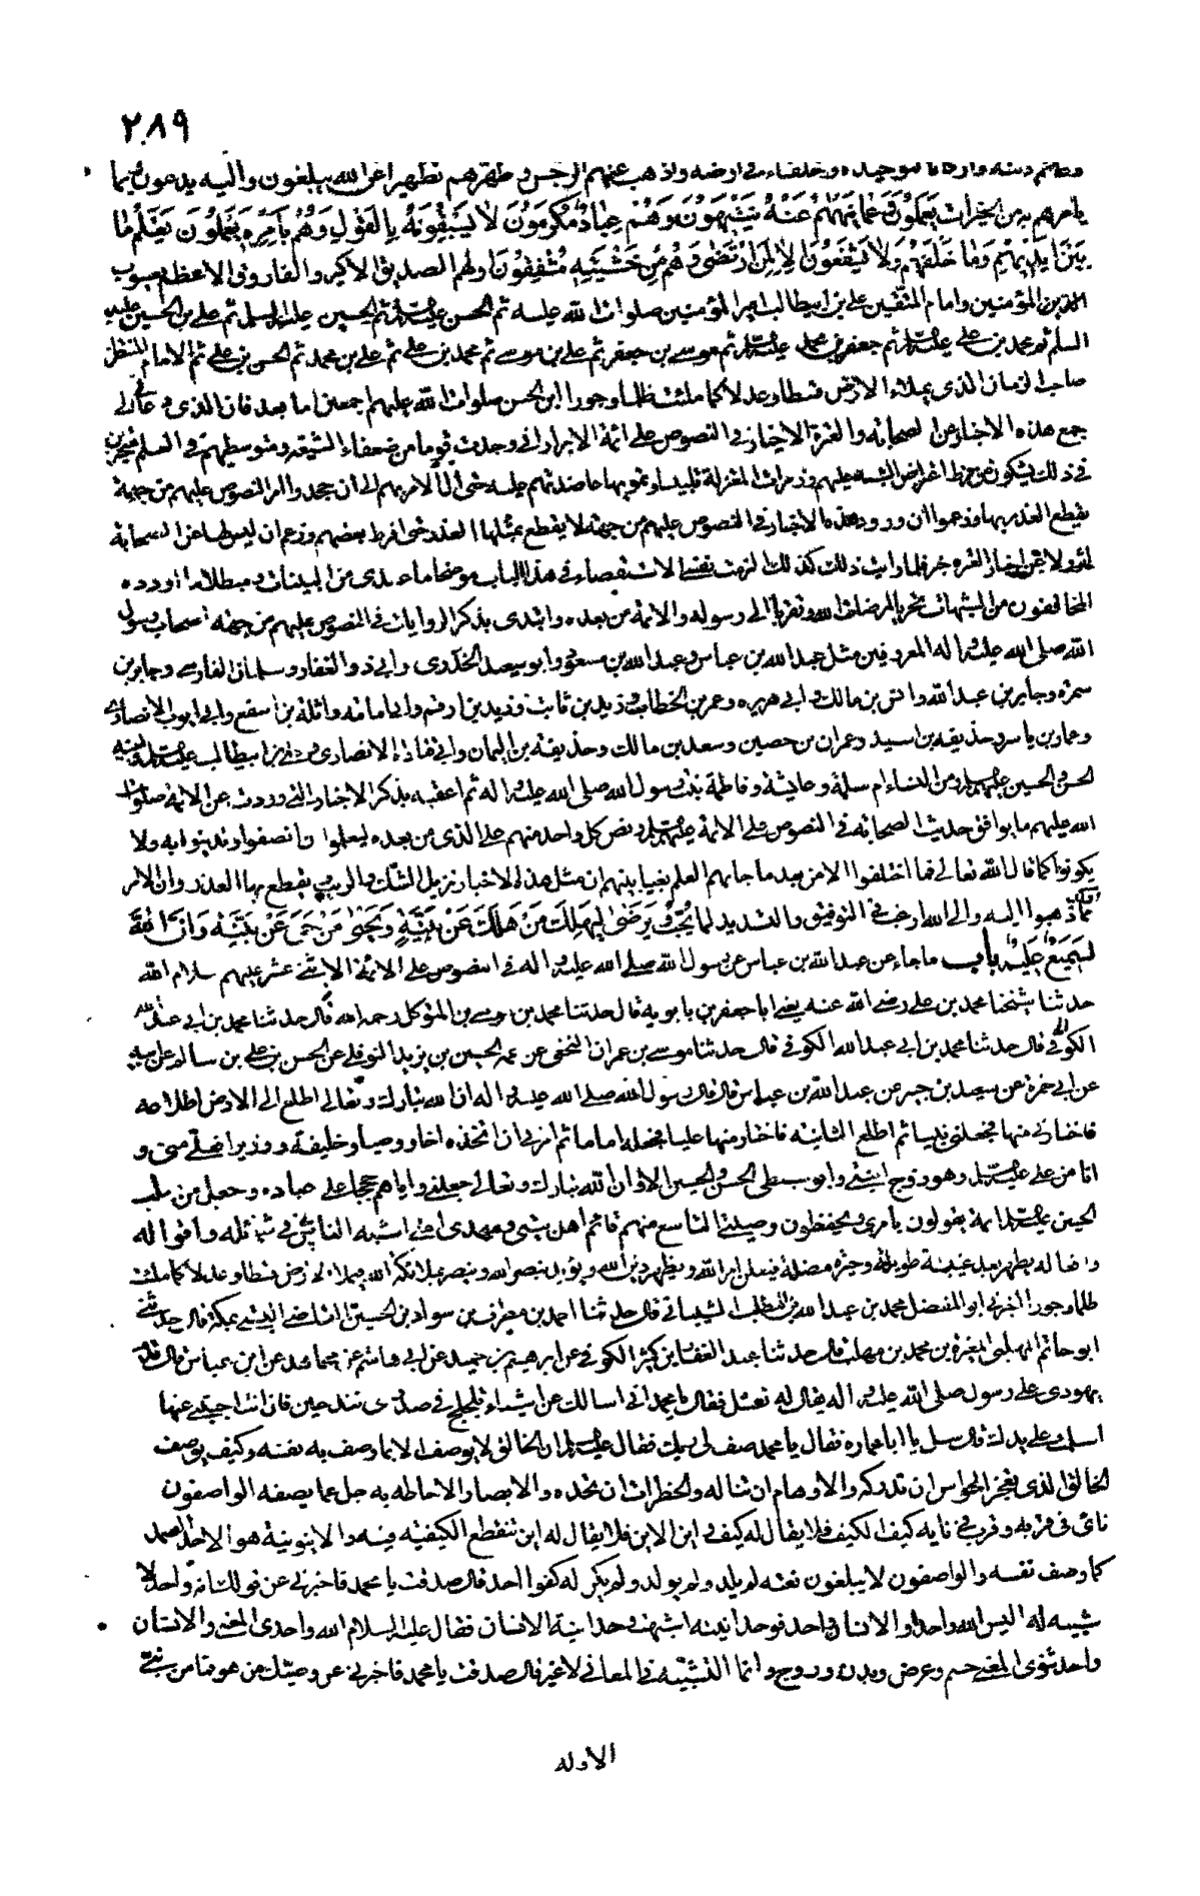 ٢٨٩
دينه وتوحيده وخلفاء في ارضه واذهب عنهم الرجس وطهرهم تطهيرا عن الله يبلغون واليه يدعون وبما
يامرهم به من الخيرات يعملون وعما نهاهم عنه ينتهون وهم عباد مكرمون لا يسبقونه بالقول وهم بامره يعملون يعلم ما
بين ايديهم وما خلفهم ولا يشفعون الا لمن ارتضى وهم من خشيته مشفقون اولهم الصديق الاكبر والفاروق الاعظم يعسوب
المؤمنين وامام المتقين علي بن ابيطالب امير المؤمنين صلوات الله عليه ثم الحسن عليه السلم ثم الحسين عليه السلم ثم علي بن الحسين عليه
السلم ثم محمد بن علي عليه السلم ثم جعفر بن محمد عليه السلم ثم موسى بن جعفر ثم علي بن موسى ثم محمد بن علي ثم علي بن محمد ثم الحسن بن علي ثم الامام المنتظر
صاحب الزمان الذي يملاء الارض قسطا وعدلا كما ملئت ظلما وجورا ابن الحسن صلوات الله عليهم اجمعين اما بعد فان الذي دعاني الى
جمع هذه الاخبار عن الصحابة والعترة الاخيار في النصوص على ائمة الابرار اني وجدت قوما من ضعفاء الشيعة ومتوسطيهم في العلم متحيرين
في ذلك يشكون فرط اعتراض المشبهة عليهم وزمرات المعتزلة تلبيسا وتمويها عاضدتهم عليه حتى آل الامر بهم الى ان جحدوا امر النصوص عليهم من جهة
يقطع العذر بها وزعموا ان ورود هذه الاخبار في النصوص عليهم من جهة لا يقطع بمثلها العذر حتى افرط بعضهم وزعم ان ليس لها عن الصحابة
اثر ولا عن اخبار العترة خبر فلما رايت ذلك كذلك الزمت نفسي الاستقصاء في هذا الباب موضحا ما عندي من البينات ومبطلا ما اورده
المخالفون من الشبهات تحريا لمرضات الله وتقربا الى رسوله والائمة من بعده وابتدى بذكر الروايات في النصوص عليهم من جهة اصحاب رسول
الله صلى الله عليه واله المعروفين مثل عبد الله بن عباس وعبد الله بن مسعود وابو سعيد الخدري وابي ذر الغفار وسلمان الفارسي وجابر بن
سمرة وجابر بن عبد الله وانس بن مالك وابي هريرة وعمر بن الخطاب وزيد بن ثابت وزيد بن ارقم وابي امامة واثلة بن اسقع وابي ايوب الانصاري
وعمار بن ياسر وحذيفة بن اسيد وعمران بن حصين وسعد بن مالك وحذيفة بن اليمان وابي قتادة الانصاري وعلي بن ابيطالب عليه السلم وابنيه
الحسن والحسين عليهم السلم ومن النساء ام سلمة وعايشة وفاطمة بنت رسول الله صلى الله عليه واله ثم اعقبه بذكر الاخبار التي وردت عن الائمة صلوات
الله عليهم ما يوافق حديث الصحابة في النصوص على الائمة عليهم السلم ونص كل واحد منهم على الذي من بعده ليعلموا ان انصفوا ويدينوا به ولا
يكونوا كما قال الله تعالى فما اختلفوا الا من بعد ما جاءهم العلم بغيا بينهم ان مثل هذه الاخبار تزيل الشك والريب ويقطع بها العذر وان الامر
كما ذهبوا اليه والى الله ارغب في التوفيق والتسديد لما يحب ويرضى ليهلك من هلك عن بينة ويحيى من حي عن بينة وان الله
لسميع عليم باب ما جاء عن عبد الله بن عباس عن رسول الله صلى الله عليه واله في النصوص على الائمة الاثنى عشر عليهم سلام الله
حدثنا شيخنا محمد بن علي رضي الله عنه يعني ابا جعفر بن بابويه قال حدثنا محمد بن موسى بن المتوكل رحمه الله قال حدثنا محمد بن ابي عبد الله
الكوفي قال حدثنا محمد بن ابي عبد الله الكوفي قال حدثنا موسى بن عمران النخعي عن عمه الحسين بن يزيد النوفلي عن الحسن بن علي بن سالم عن ابيه
عن ابي حمزة عن سعيد بن جبير عن عبد الله بن عباس قال قال رسول الله صلى الله عليه واله ان الله تبارك وتعالى اطلع الى الارض اطلاعة
فاختارني منها فجعلني نبيا ثم اطلع الثانية فاختار منها عليا فجعله اماما ثم امرني ان اتخذه اخا ووصيا وخليفة ووزيرا فعلي مني و
انا من علي عليه السلم وهو زوج ابنتي وابو سبطي الحسن والحسين الا وان الله تبارك وتعالى جعلني واياهم حججا على عباده وجعل من صلب
الحسين عليه السلم ائمة يقومون بامري ويحفظون وصيتي التاسع منهم قائم اهل بيتي ومهدي امتي اشبه الناس بي في شمائله واقواله
وافعاله يظهر بعد غيبة طويلة وحيرة مضلة فيعلن امر الله ويظهر دين الله ويؤيد بنصر الله وينصر بملائكة الله فيملاء الارض قسطا وعدلا كما ملئت
ظلما وجورا اخبرني ابو المفضل محمد بن عبد الله بن المطلب الشيباني قال حدثنا احمد بن مطرف بن سواد بن الحسين القاضي البستي بمكة قال حدثني
ابو حاتم المهلبي المغيرة بن محمد بن مهلب قال حدثنا عبد الغفار بن كثير الكوفي عن ابرهيم بن حميد عن ابي هاشم عن مجاهد عن ابن عباس قال قدم
يهودي على رسول صلى الله عليه واله يقال له نعثل فقال يا محمد اني اسالك عن اشياء تلجلج في صدري منذ حين فان انت اجبتني عنها
اسلمت على يدك قال سل يا ابا عمارة فقال يا محمد صف لي ربك فقال عليه السلم ان الخالق لا يوصف الا بما وصف به نفسه وكيف يوصف
الخالق الذي يعجز الحواس ان تدركه والاوهام ان تناله والخطرات ان تحده والابصار الاحاطه به جل عما يصفه الواصفون
نائ في قربه وقرب في نايه كيف الكيف فلا يقال له كيف واين الاين فلا يقال له اين تنقطع الكيفيته فيه والاينونية هو الاحد الصمد
كما وصف نفسه والواصفون لا يبلغون نعته لم يلد ولم يولد ولم يكن له كفوا احد قال صدقت يا محمد فاخبرني عن قولك انه واحد لا
شبيه له اليس الله واحد والانسان واحد فوحدانيته اشبهت وحدانية الانسان فقال عليه السلام الله واحدى المعنى والانسان
واحد ثنوى المعنى جسم وعرض وبدن وروح وانما التشبيه في المعاني لا غير قال صدقت يا محمد فاخبرني عن وصيك من هو فما من نبي
الا وله